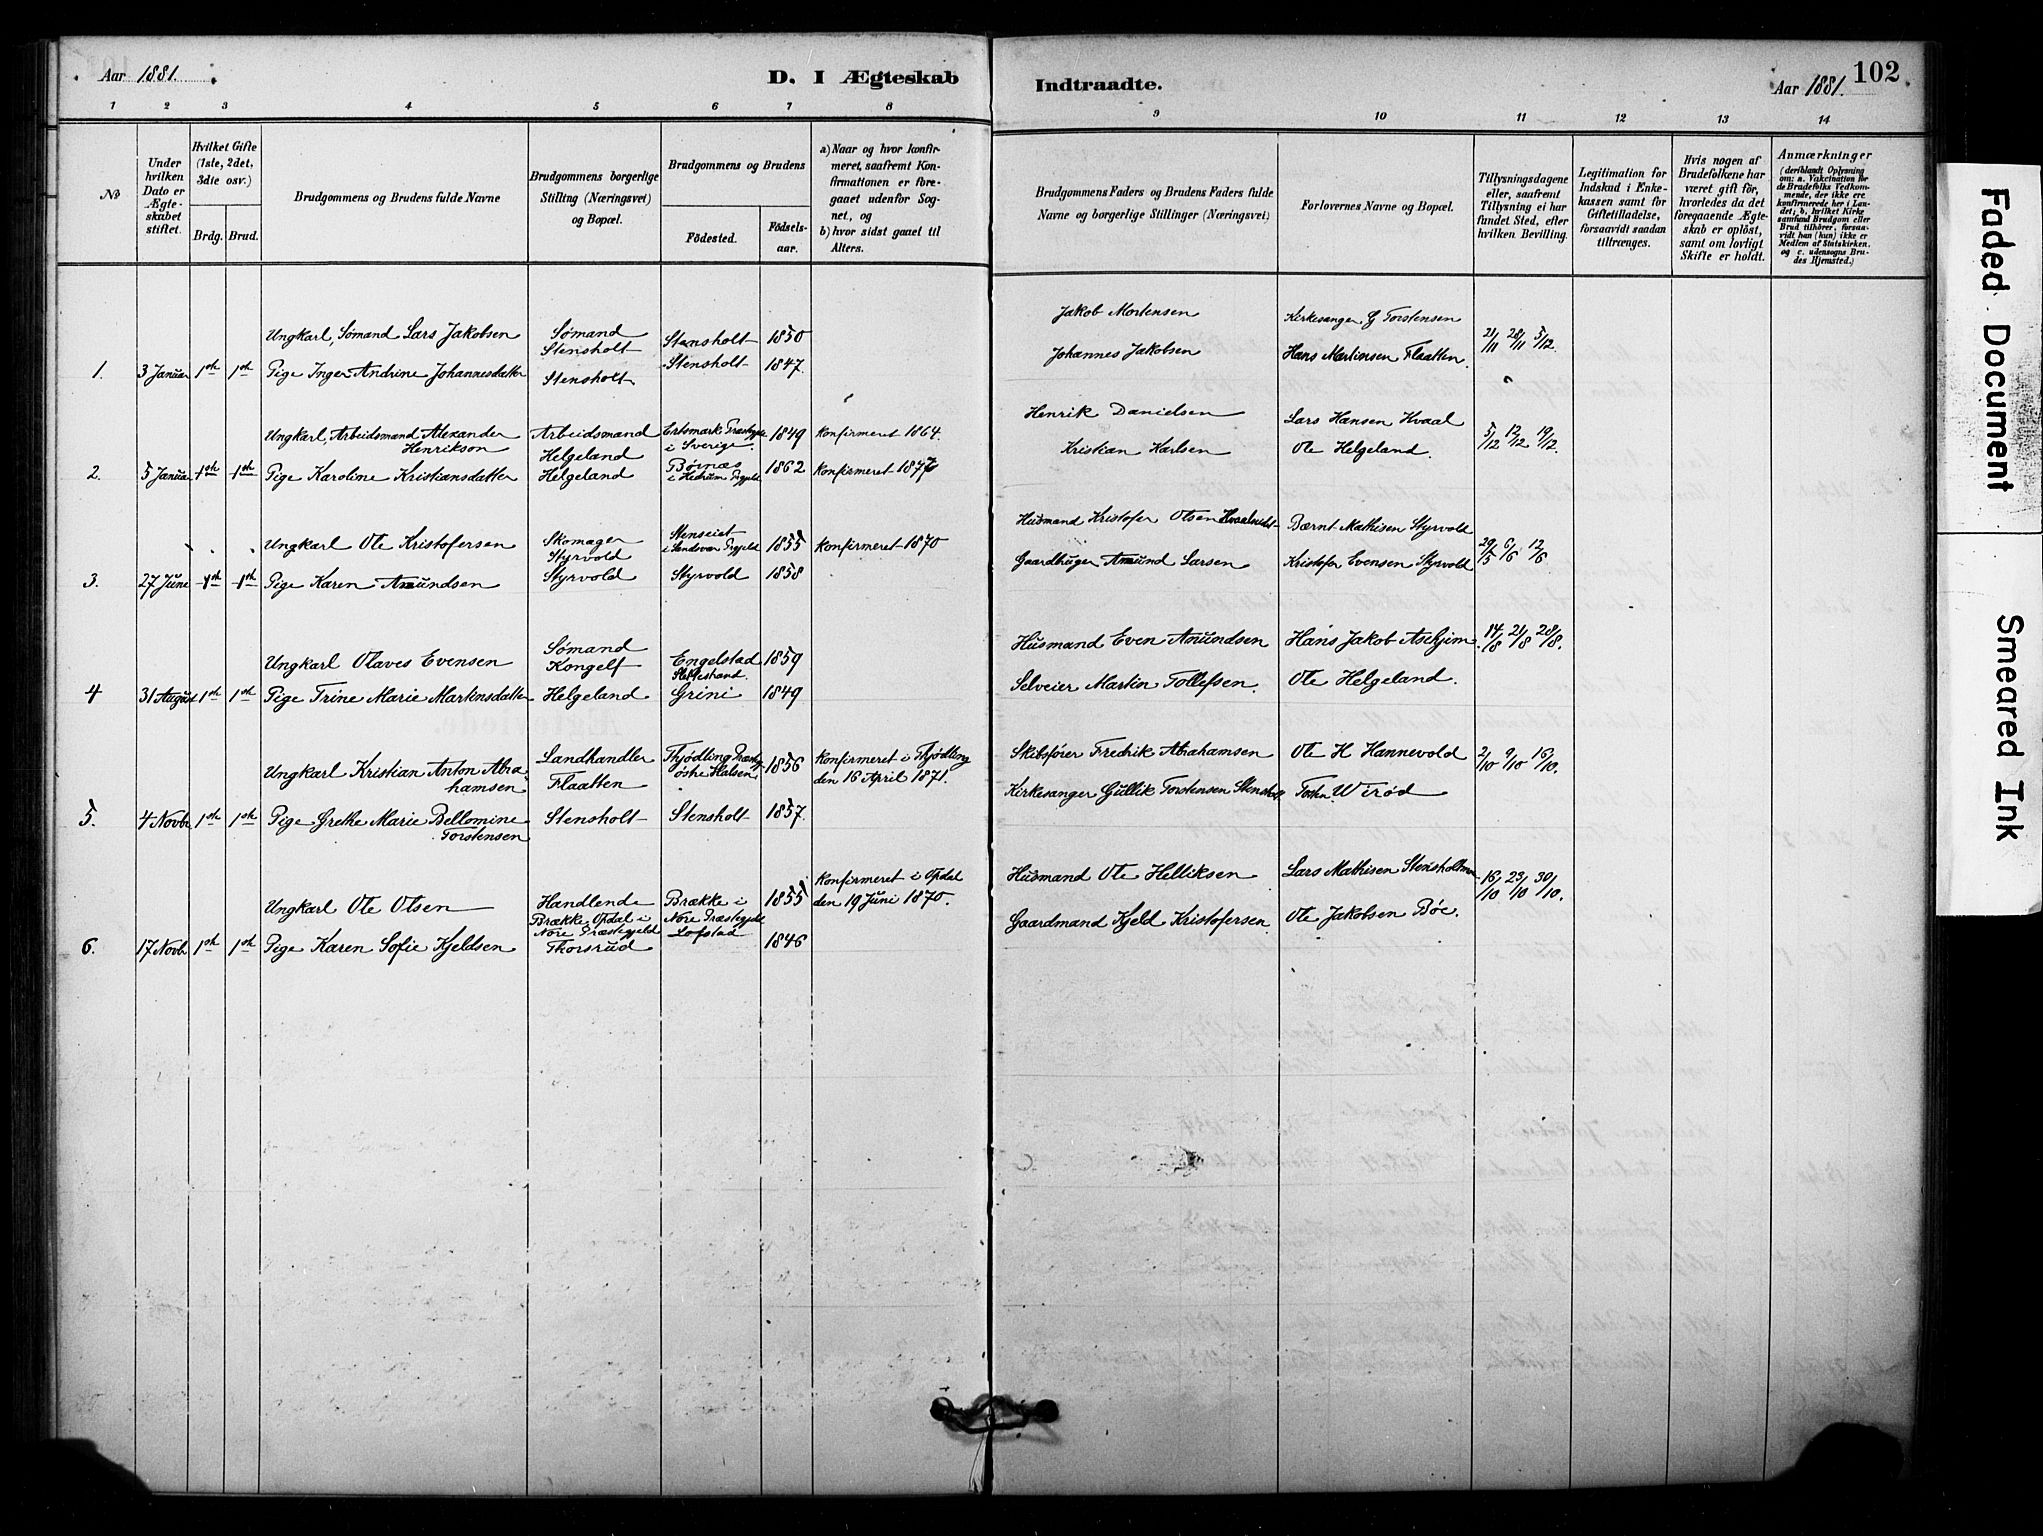 Aar 1881.
D. I Ægteskab
Indtraadte.
Aar 1881.
102
1 2 3 4 5 6 7 8
9 10 11 12 13 14
№
Under hvilken Dato er Ægteskabet stiftet.
Hvilket Gifte (1ste, 2det, 3die osv.)
Brdg. Brud.
Brudgommens og Brudens fulde Navne
Brudgommens borgerlige Stilling (Næringsvei) og Bopæl.
Brudgommens og Brudens
Födested.
Födselsaar.
a) Naar og hvor konfirmeret, saafremt Konfirmationen er foregaaet udenfor Sognet, og
b) hvor sidst gaaet til Alters.
Brudgommens Faders og Brudens Faders fulde Navne og borgerlige Stillinger (Næringsvei)
Forlovernes Navne og Bopæl.
Tillysningsdagene eller, saafremt Tillysning ei har fundet Sted, efter hvilken Bevilling.
Legitimation for Indskud i Enkekassen samt for Giftetilladelse, forsaavidt saadan tiltrænges.
Hvis nogen af Brudefolkene har været gift för, hvorledes da det foregaaende Ægteskab er oplöst, samt om lovligt Skifte er holdt.
Anmærkninger
(deriblandt Oplysning om: a. Vakcination for de Brudefolks Vedkommende, der ikke ere konfirmerede her i Landet; b. hvilket Kirkesamfund Brudgom eller Brud tilhörer, forsaavidt han (hun) ikke er Medlem af Statskirken. og c. udensogns Brudes Hjemsted.)
Ungkarl, Sømand Lars Jakobsen Sømand Stensholt Stensholt 1850
Jakob Mortensen Kirkesanger G Torstensen 21/11 28/11 5/12.
1. 3 Januar 1ste 1ste Pige Inger Andrine Johannesdatter Stensholt Stensholt 1847.
Johannes Jakobsen Hans Martinsen Flaatten.
Ungkarl, Arbeidsmand Alexander Henrikson Arbeidsmand Helgeland i Sverige 1849 konfirmeret 1864.
Henrik Danielsen Lars Hansen Kvaal 5/12 12/12 19/12.
2. 5 Januar 1ste 1ste Pige Karoline Kristiansdatter Helgeland Børnæs i Hedrum Prgjeld 1862 konfirmeret 1877
Kristian Karlsen Ole Helgeland.
Ungkarl Ole Kristofersen Skomager Styrvold i Sandsvær Prgjeld 1855 konfirmeret 1870
Husmand Kristofer Olsen Bærnt Mathisen Styrvold 29/5 6/6 12/6
3. 27 Juni 1ste 1ste Pige Karen Amundsen Styrvold Styrvold 1858
Gaardbruger Amund Larsen Kristofer Evensen Styrvold
Ungkarl Olaves Evensen Sømand Kongelf Engelstad 1859
Husmand Even Amundsen Hans Jakob Askjim 14/8 21/8 28/8.
4 31 August 1ste 1ste Pige Trine Marie Martinsdatter Helgeland Grini 1849
Selveier Martin Tollefsen. Ole Helgeland.
Ungkarl Kristian Anton Abrahamsen Landhandler Flaatten Thjødling Præstg østre Halsen 1856 konfirmeret i Thjødling den 16 April 1871.
Skibsfører Fredrik Abrahamsen Ole H Hannevold 2/10 9/10 16/10.
5. 4 Novbr 1ste 1ste Pige Grethe Marie Bellomine Torstensen Stensholt Stensholt 1857.
Kirkesanger Gullik Torstensen Stensholt Wirød
Ungkarl Ole Olsen Handlende Brække Opdal i Nore Præstegjeld Brække i Nore Præstegjeld 1855 konfirmeret i Opdal den 19 Juni 1870.
Husmand Ole Helliksen Lars Mathisen Stensholtmoen 16/10 23/10 30/10.
6. 17 Novbr 1ste 1ste Pige Karen Sofie Kjeldsen Thorsrud Lofstad 1846
Gaardmand Kjeld Kristofersen Ole Jakobsen Bøe.
Faded Document
Smeared Ink